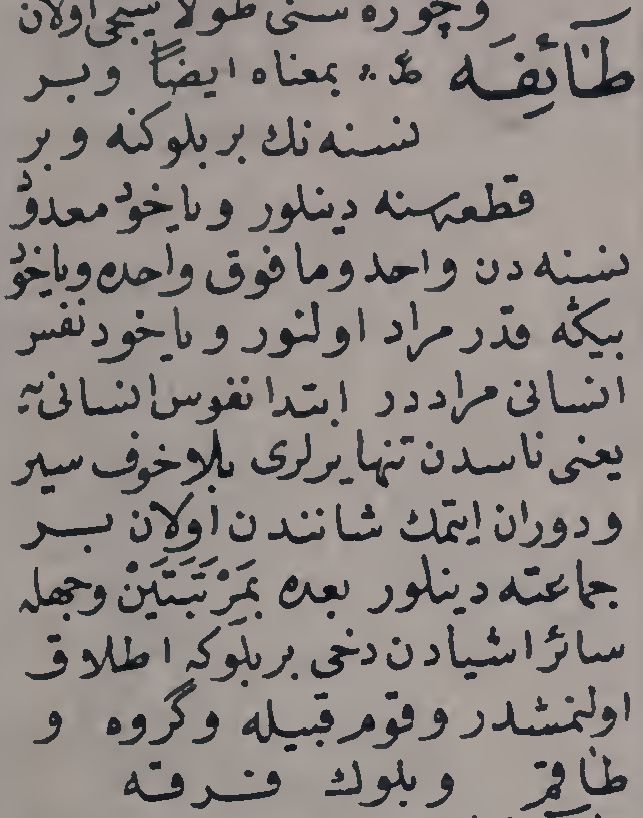 وچوره سنى طولا يبجى اولان
طَآئِفَه ع. بمعناه ايضاً و بر
نسنه نك بر بلوكنه و بر
قطعه سنه دينلور و ياخود معدود
نسنه دن واحد و مافوق واحده و ياخود
بيكه قدر مراد اولنور و ياخود نفس
انسانى مراددر ابتدا نفوس انسانى يه
يعنى ناسدن تنها يرلرى بلا خوف سير
و دوران ايتمك شانندن اولان بر
جماعته دينلور بعده بمَرْتَبَتَيْن و جمله
سائر اشيادن دخى بر بلوكه اطلاق
اولنمشدر و قوم قبيله و گروه و
طاقم و بلوك فرقه